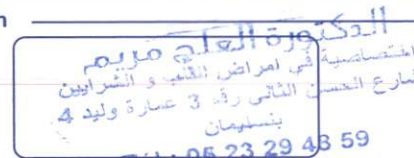 n
الدكتورة العلج مريم
اختصاصية في امراض القلب و الشرايين
شارع الحسن الثاني رقم 3 عمارة وليد 4
بنسليمان
05 23 29 48 59